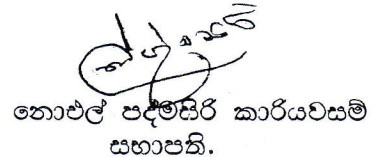 නොඑල් පද්මසිරි කාරියවසම්
සභාපති.